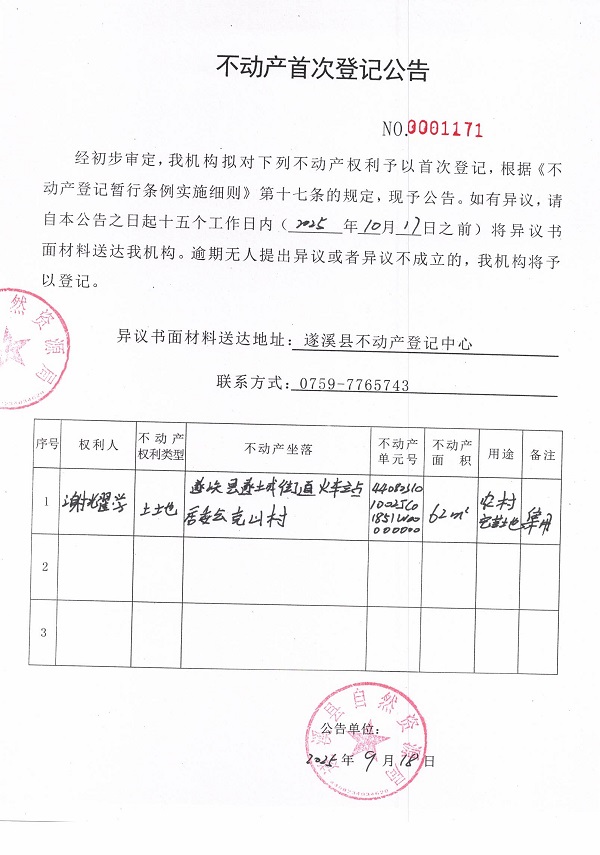 不动产首次登记公告
NO.0001171
经初步审定，我机构拟对下列不动产权利予以首次登记，根据《不
动产登记暂行条例实施细则》第十七条的规定，现予公告。如有异议，请
自本公告之日起十五个工作日内（2025年10月17日之前）将异议书
面材料送达我机构。逾期无人提出异议或者异议不成立的，我机构将予
以登记。
然资源局
异议书面材料送达地址：遂溪县不动产登记中心
联系方式：0759-7765743
序号 权利人 不动产权利类型 不动产坐落 不动产单元号 不动产面积 用途 备注
1 谢 学 土地 遂溪县遂城街道火车站
居委会 山村 62m² 农村宅基地
2
3
遂溪县自然资源局
公告单位：
2025年9月18日